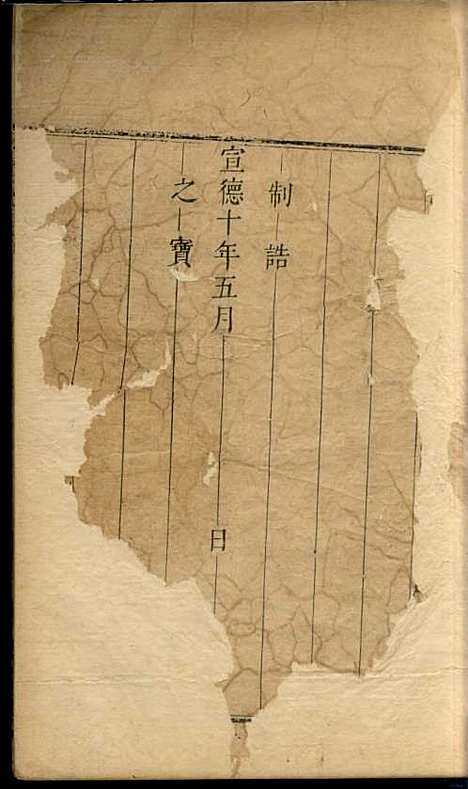 制誥
宣德十年五月 日
之寶